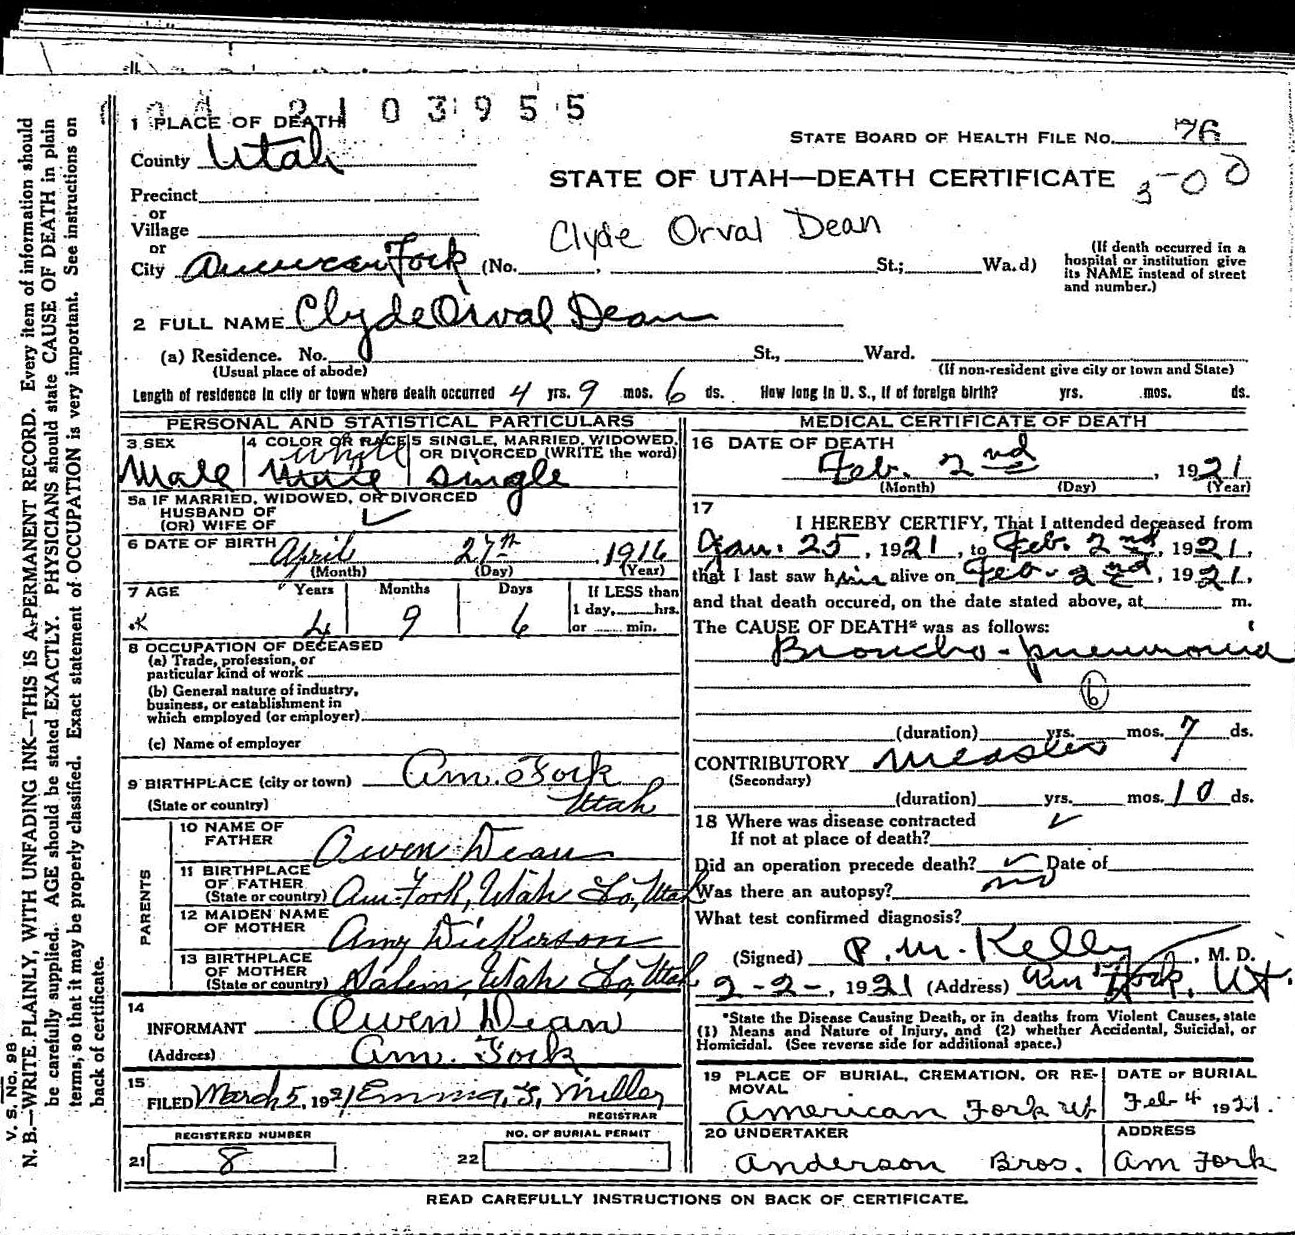 2103955
1 PLACE OF DEATH
STATE BOARD OF HEALTH FILE No. 76
County Utah
STATE OF UTAH—DEATH CERTIFICATE 3-00
Precinct
or
Village
Clyde Orval Dean
or
City American Fork (No. , St.; Wa.d)
(If death occurred in a hospital or institution give its NAME instead of street and number.)
2 FULL NAME Clyde Orval Dean
(a) Residence. No. St., Ward.
(Usual place of abode) (If non-resident give city or town and State)
Length of residence in city or town where death occurred 4 yrs. 9 mos. 6 ds. How long in U. S., if of foreign birth? yrs. mos. ds.
PERSONAL AND STATISTICAL PARTICULARS
3 SEX
Male
4 COLOR OR RACE
White
Male
5 SINGLE, MARRIED, WIDOWED, OR DIVORCED (WRITE the word)
Single
5a IF MARRIED, WIDOWED, OR DIVORCED
HUSBAND OF
(OR) WIFE OF
6 DATE OF BIRTH April 27th, 1916
(Month) (Day) (Year)
7 AGE Years Months Days If LESS than
1 day, hrs.
4 9 6 or min.
8 OCCUPATION OF DECEASED
(a) Trade, profession, or
particular kind of work
(b) General nature of industry,
business, or establishment in
which employed (or employer)
(c) Name of employer
9 BIRTHPLACE (city or town) Am. Fork
(State or country) Utah
PARENTS
10 NAME OF FATHER Owen Dean
11 BIRTHPLACE OF FATHER
(State or country) Am. Fork, Utah Co, Utah
12 MAIDEN NAME OF MOTHER Amy Dickerson
13 BIRTHPLACE OF MOTHER
(State or country) Salem, Utah Co, Utah
14
INFORMANT Owen Dean
(Address) Am. Fork
15
FILED March 5, 1921 Emma S. Miller
REGISTRAR
REGISTERED NUMBER
21 8
NO. OF BURIAL PERMIT
22
MEDICAL CERTIFICATE OF DEATH
16 DATE OF DEATH
Feb. 2nd, 1921
(Month) (Day) (Year)
17
I HEREBY CERTIFY, That I attended deceased from
Jan. 25, 1921, to Feb. 2nd, 1921,
that I last saw him alive on Feb. 2nd, 1921,
and that death occured, on the date stated above, at m.
The CAUSE OF DEATH* was as follows:
Broncho-pneumonia
6
(duration) yrs. mos. 7 ds.
CONTRIBUTORY Measles
(Secondary)
(duration) yrs. mos. 10 ds.
18 Where was disease contracted
If not at place of death?
Did an operation precede death? Date of
Was there an autopsy? no
What test confirmed diagnosis?
(Signed) P. M. Kelly, M. D.
2-2-, 1921 (Address) Am Fork, Ut.
*State the Disease Causing Death, or in deaths from Violent Causes, state
(1) Means and Nature of Injury, and (2) whether Accidental, Suicidal, or
Homicidal. (See reverse side for additional space.)
19 PLACE OF BURIAL, CREMATION, OR REMOVAL
American Fork Ut
DATE OF BURIAL
Feb 4 1921.
20 UNDERTAKER
Anderson Bros.
ADDRESS
Am Fork
READ CAREFULLY INSTRUCTIONS ON BACK OF CERTIFICATE.
V. S. No. 98
N. B.—WRITE PLAINLY, WITH UNFADING INK—THIS IS A PERMANENT RECORD. Every item of information should
be carefully supplied. AGE should be stated EXACTLY. PHYSICIANS should state CAUSE OF DEATH in plain
terms, so that it may be properly classified. Exact statement of OCCUPATION is very important. See instructions on
back of certificate.